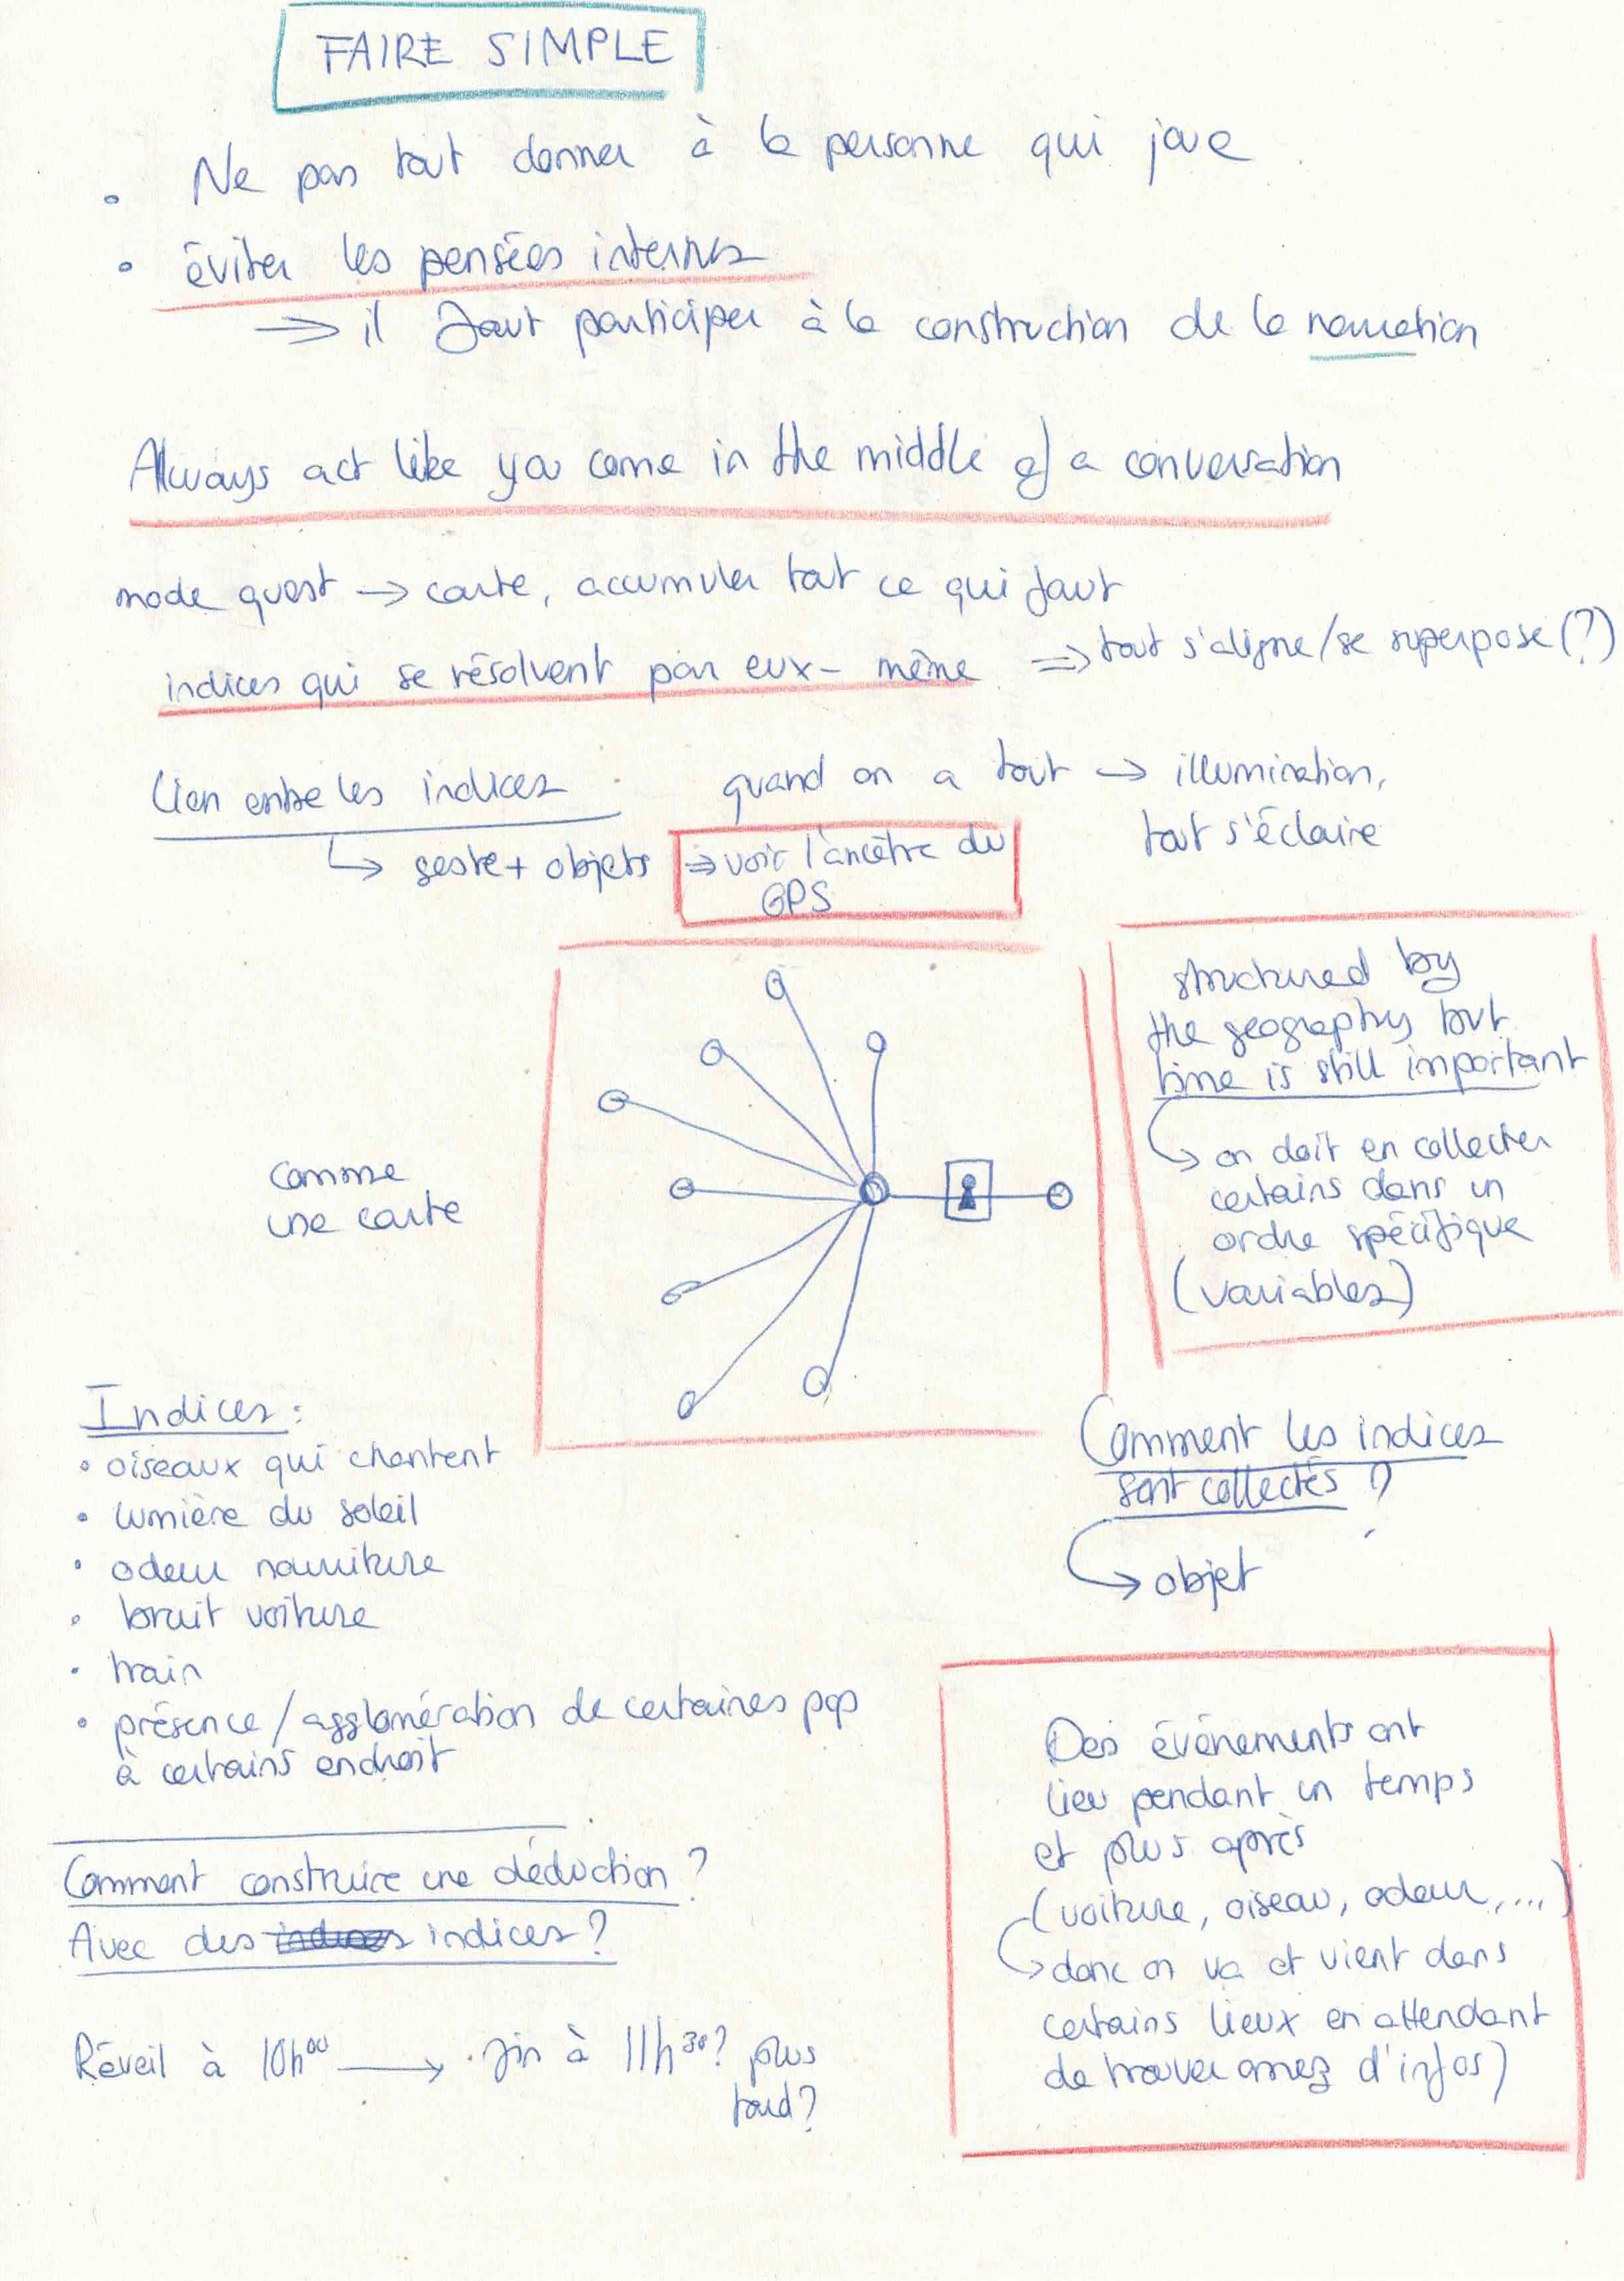 FAIRE SIMPLE
• Ne pas tout donner à la personne qui joue
• éviter les pensées internes
⇒ il faut participer à la construction de la narration
Always act like you come in the middle of a conversation
mode quest → carte, accumuler tout ce qui faut
indices qui se résolvent par eux-même ⇒ tout s'aligne/se superpose (?)
lien entre les indices
↳ geste + objets
⇒ voir l'ancêtre du
GPS
quand on a tout → illumination,
tout s'éclaire
comme
une carte
structured by
the geography but
time is still important
↳ on doit en collecter
certains dans un
ordre spécifique
(variables)
Indices :
• oiseaux qui chantent
• lumière du soleil
• odeur nourriture
• bruit voiture
• train
• présence/agglomération de certaines pop
à certains endroit
Comment les indices
sont collectés ?
↳ objet
Comment construire une déduction ?
Avec des indices ?
Réveil à 10h00 → fin à 11h30 ? plus
tard ?
Des événements ont
lieu pendant un temps
et plus après
(voiture, oiseau, odeur, ...)
↳ donc on va et vient dans
certains lieux en attendant
de trouver assez d'infos)